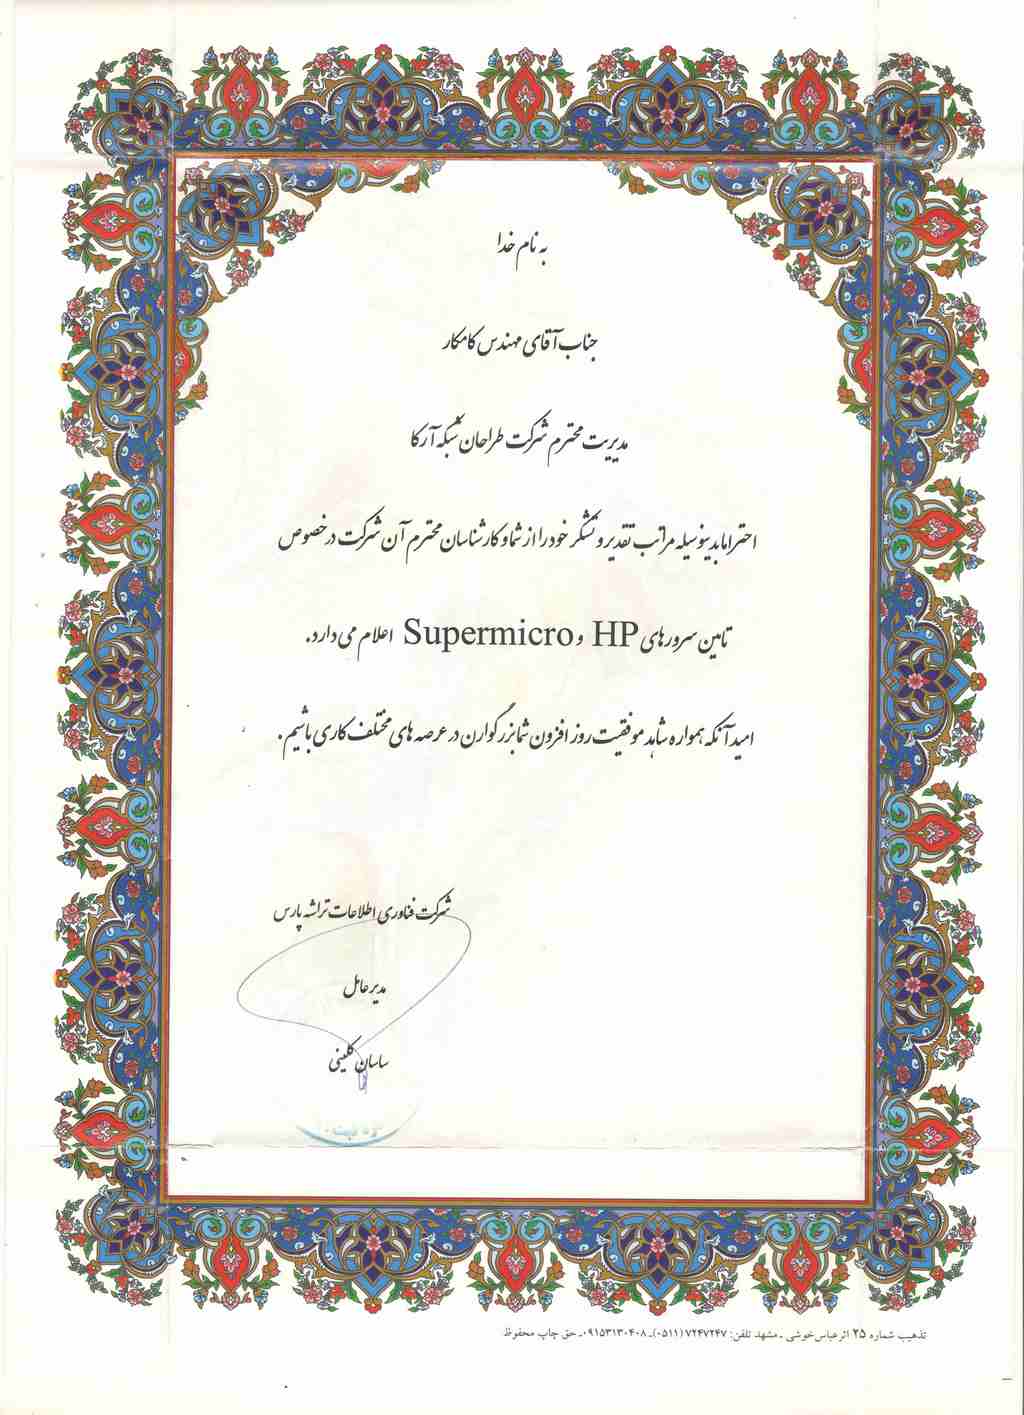 به نام خدا
جناب آقای مهندس کامکار
مدیریت محترم شرکت طراحان شبکه آرکا
احتراما بدینوسیله مراتب تقدیر و تشکر خود را از شما و کارشناسان محترم آن شرکت در خصوص
تامین سرورهای HP و Supermicro اعلام می دارد.
امید آنکه همواره شاهد موفقیت روز افزون شما بزرگواران در عرصه های مختلف کاری باشیم.
شرکت فناوری اطلاعات تراشه پارس
مدیر عامل
ساسان کلینی
تذهیب شماره ۲۵ اثر عباس خوشی - مشهد تلفن: ۷۲۴۷۲۴۷ (۰۵۱۱) - ۰۹۱۵۳۱۳۰۴۰۸ - حق چاپ محفوظ